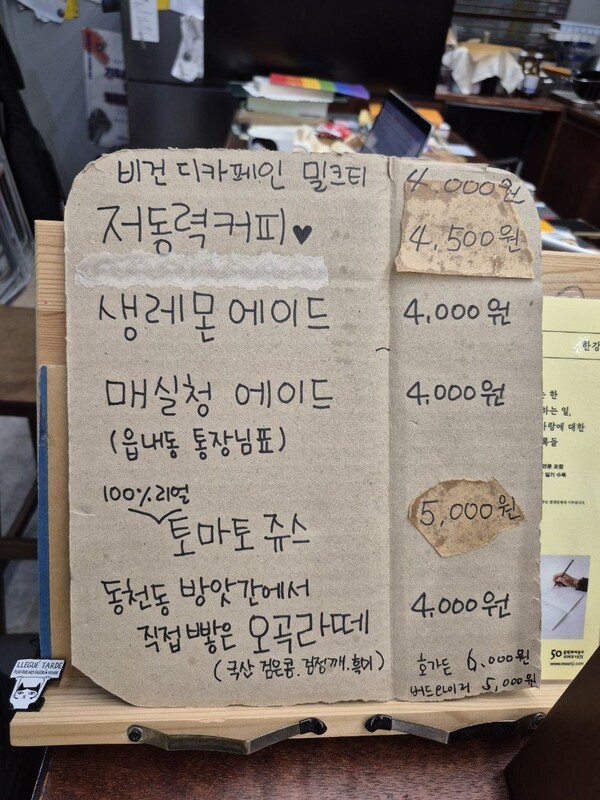 비건 디카페인 밀크티 4,000원
저동력커피♥ 4,500원
생레몬에이드 4,000원
매실청 에이드 4,000원
(읍내동 통장님표)
100% 리얼
토마토 쥬스 5,000원
동천동 방앗간에서
직접 빻은 오곡라떼 4,000원
(국산 검은콩. 검정깨. 흑미)
호가든 6,000원
버드와이저 5,000원
LLEGUE TARDE
한강
한
하는 일,
사랑에 대한
록들
일기 수록
50